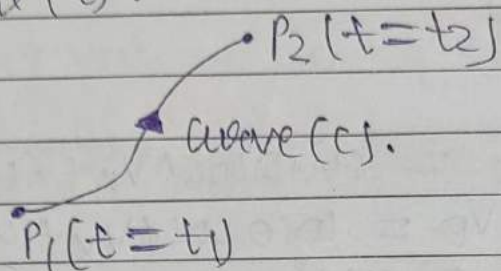 P2 (t = t2)
curve (c).
P1 (t = t1)